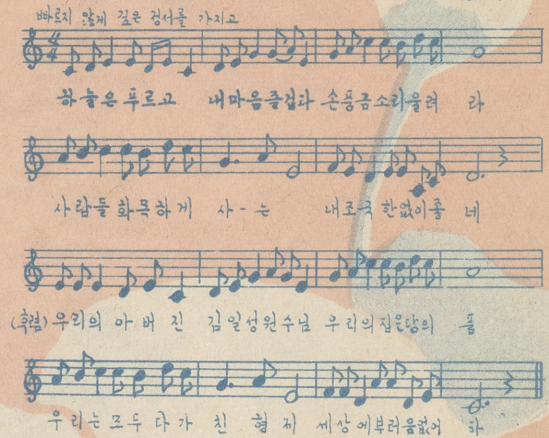 빠르지 않게 깊은 정서를 가지고
하늘은 푸르고 내마음즐겁다 손풍금소리울려 라
사람들 화목하게 사--는 내조국 한없이좋 네
(후렴) 우리의 아버진 김일성원수님 우리의집은당의 품
우리는 모두 다 가 친 형 제 세상에부러움없어 라